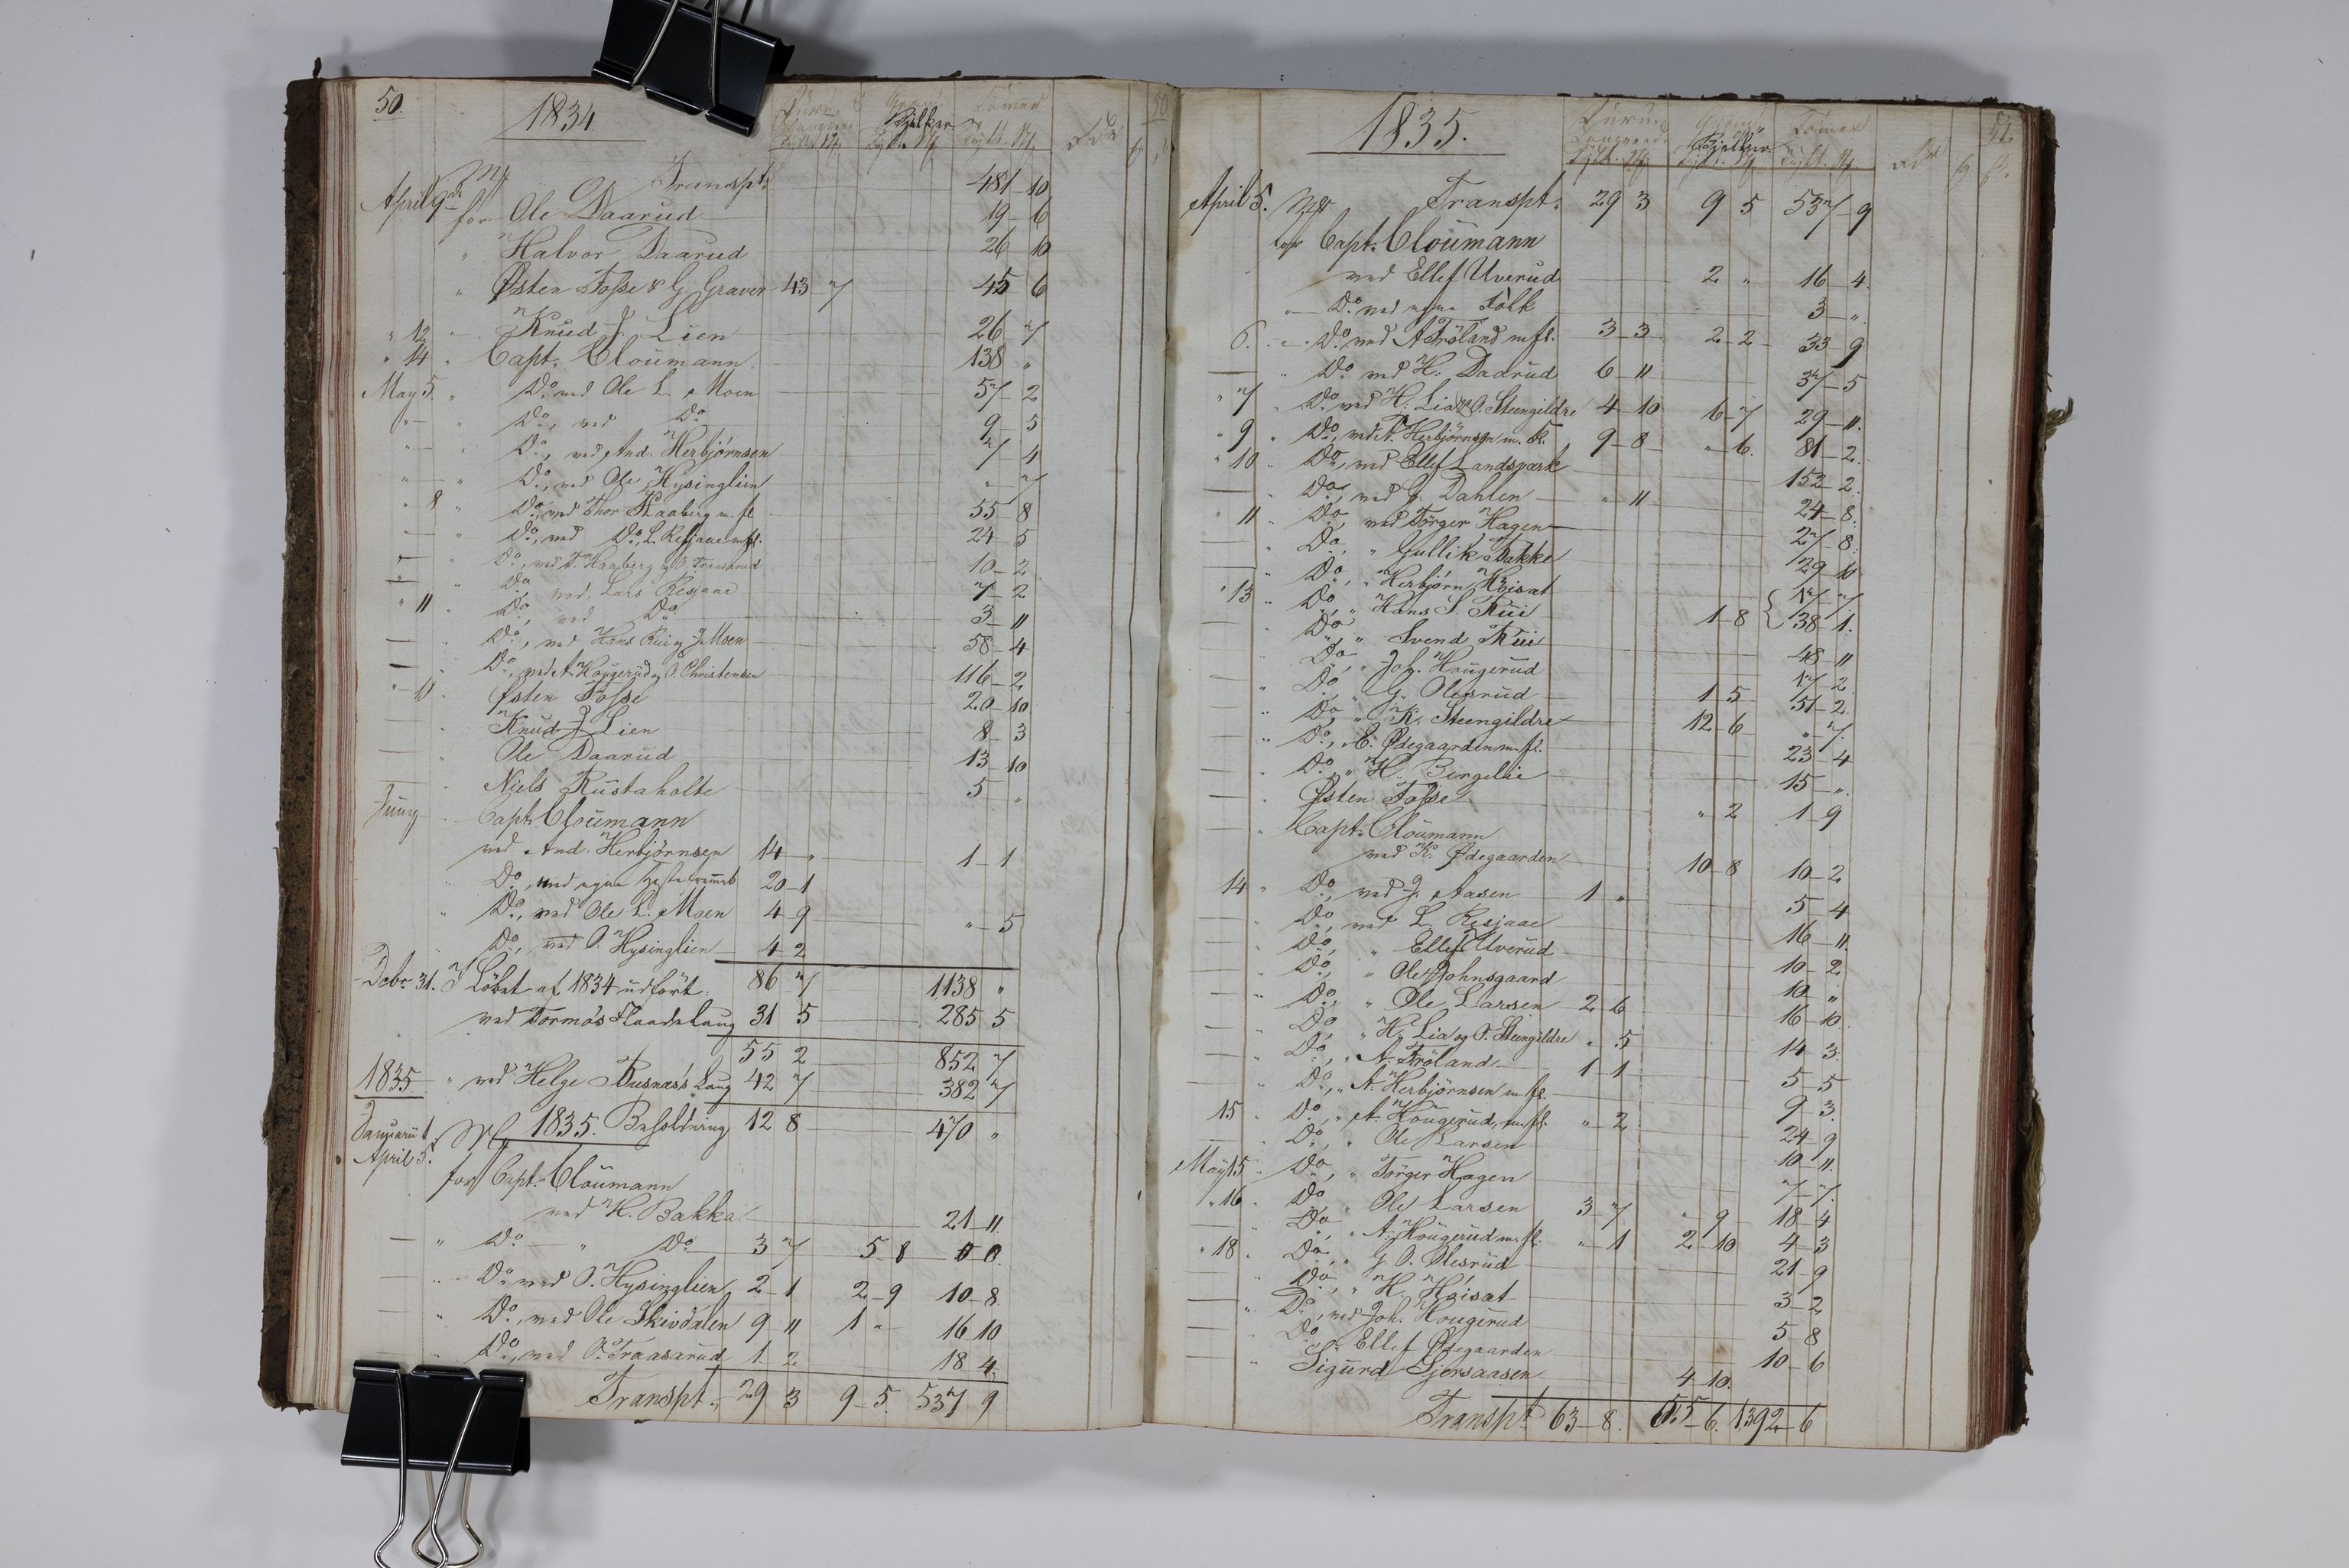 50.
1834
Bjelker
Tylt. St.
Transpt. 481-10
April 9de for Ole Daarud 19-6
" Halvor Daarud 26-10
" Østen Fosse & G. Graver 43-7 45-6
" 12 - Knud J. Lien 26-7
" 14 " Capt. Cloumann 138 "
May 5 " Do. ved Ole L. Moen 57-2
" - " Do., ved Do. 9-5
Do., ved And. Herbjörnsen 7-4
Do., ved Ole Hysinglien " - 7
" 8 " Do., ved Thor Kaaberg m. fl. 55-8
Do., ved Do., L. Resjaae m. fl. 24-5
Do., ved 10-2
Do., ved Lars Resjaae 7-2
" 11 " Do., ved Do. 3-11
Do., ved Hans Rui og J. Moen 58-4
Do., ved A. Hougerud og O. Christensen 116-2
Østen Fosse 20-10
Knud J. Lien 8-3
Ole Daarud 13-10
Niels Rustaholte 5 "
Juny Capt. Cloumann
ved And. Herbjörnsen 14 - " 1-1
Do., med egne 20-1
Do., ved Ole L. Moen 4-9 " - 5
Do., ved O. Hysinglien 4 2
Decbr. 31. I Löbet af 1834 udfört 86 7 1138 "
ved Tormos Flaadelaug 31 5 285 5
55 2 852 7
1835 " ved Helge Rusnæs's Laug 42 7 382 7
1835. Beholdning 12 8 470 "
Januarii 1
April 5. for Capt. Cloumann
ved H. Bakka 21-11
" Do. " Do. 3 7 5 8 0 0.
Do. ved O. Hysinglien 2-1 2-9 10-8
Do., ved Ole Skivdalen 9-11 1 " 16 10
Do., ved O. Traasarud 1. 2 18 4
Transpt. 29 3 9-5. 537 9
51
1835.
Bjelker
Tömer
Tylt. St.
April 5. Transpt. 29 3 9 5 537-9
for Capt. Cloumann
ved Ellef Uverud 2 " 16-4
Do. ved egne Folk 3-".
6. Do. ved A. Fröland m. fl. 3-3 2-2 33-9
" Do. ved H. Dadrud 6-11 37-5
" 7 " Do. ved H. Lia og O. Steengildre 4-10 6-7 29-11.
" 9 " Do., ved A. Herbjörnsen m. fl. 9-8 "-6. 81-2.
" 10 " Do., ved Ellef Landsverk 152-2.
Do., ved G. Dahlen "-11 24-8.
" 11 " Do., ved Törger Hagen 27-8.
Do., " Gullik Bakke 129-10
Do., " Herbjörn Hoisat 17-7
" 13 " Do., " Hans S. Rui 1-8 { 38-1.
Do., " Svend Rui 48-11
Do., " Joh. Hougerud 17-2
Do., " G. Olesrud 1 5 51-2
Do., " K. Steengildre 12-6 "-7.
Do., " E. Ødegaarden m. fl. 23-4
Do., " H. Bergelie 15-".
Østen Fosse " 2 1-9
" Capt. Cloumann
ved K. Ødegaarden 10-8 10-2
14 " Do. ved J. Aasen 1 " 5-4
Do., ved L. Resjaae 16-11.
Do., " Ellef Uverud 10-2
Do., " Ole Johnsgaard 10-"
Do., " Ole Larsen 2-6 16-10
Do., " H. Lia og O. Steengildre " 5 14-3.
Do., " A. Fröland 1-1 5-5
Do., " A. Herbjörnsen m. fl. 9 3.
15 " Do., " A. Hougerud m. fl. "-2 24-9
Do., " Ole Larsen 10-11.
May 15 " Do., " Törger Hagen 7-7.
" 16 " Do., " Ole Larsen 3-7 "-9 18-4
Do., " A. Hougerud m. fl. "-1 2-10 4-3
" 18 " Do., " G. O. Olesrud 21-9
Do., " H. Hoisat 3-2
" Do., ved Joh. Hougerud 5-8
Do. " Ellef Ødegaarden 10-6
Sigurd Gjersaasen 4-10.
Transpt. 63-8. 55-6. 1392-6